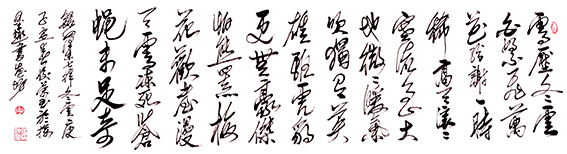 雪壓冬雲
白絮飛萬
花紛謝一時
稀高天滾滾
寒流急大
地微微暖氣
吹獨有英
雄驅虎豹
更無豪傑
怕熊羆梅
花歡喜漫
天雪凍死蒼
蠅未足奇